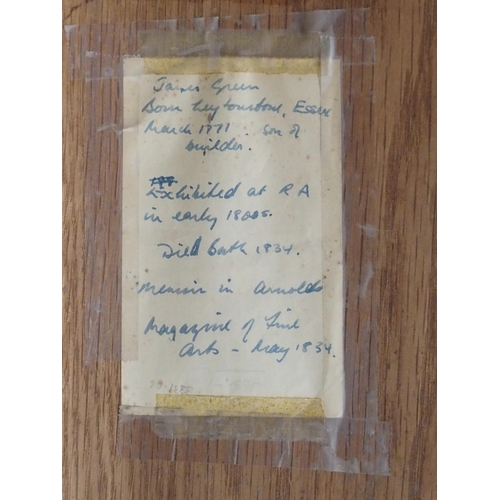 James Green
Born Leytonstone, Essex
March 1771. son of
builder.
Exhibited at RA
in early 1800s.
Died Bath 1834.
Memoir in Arnolds
Magazine of Fine
Arts - May 1834.